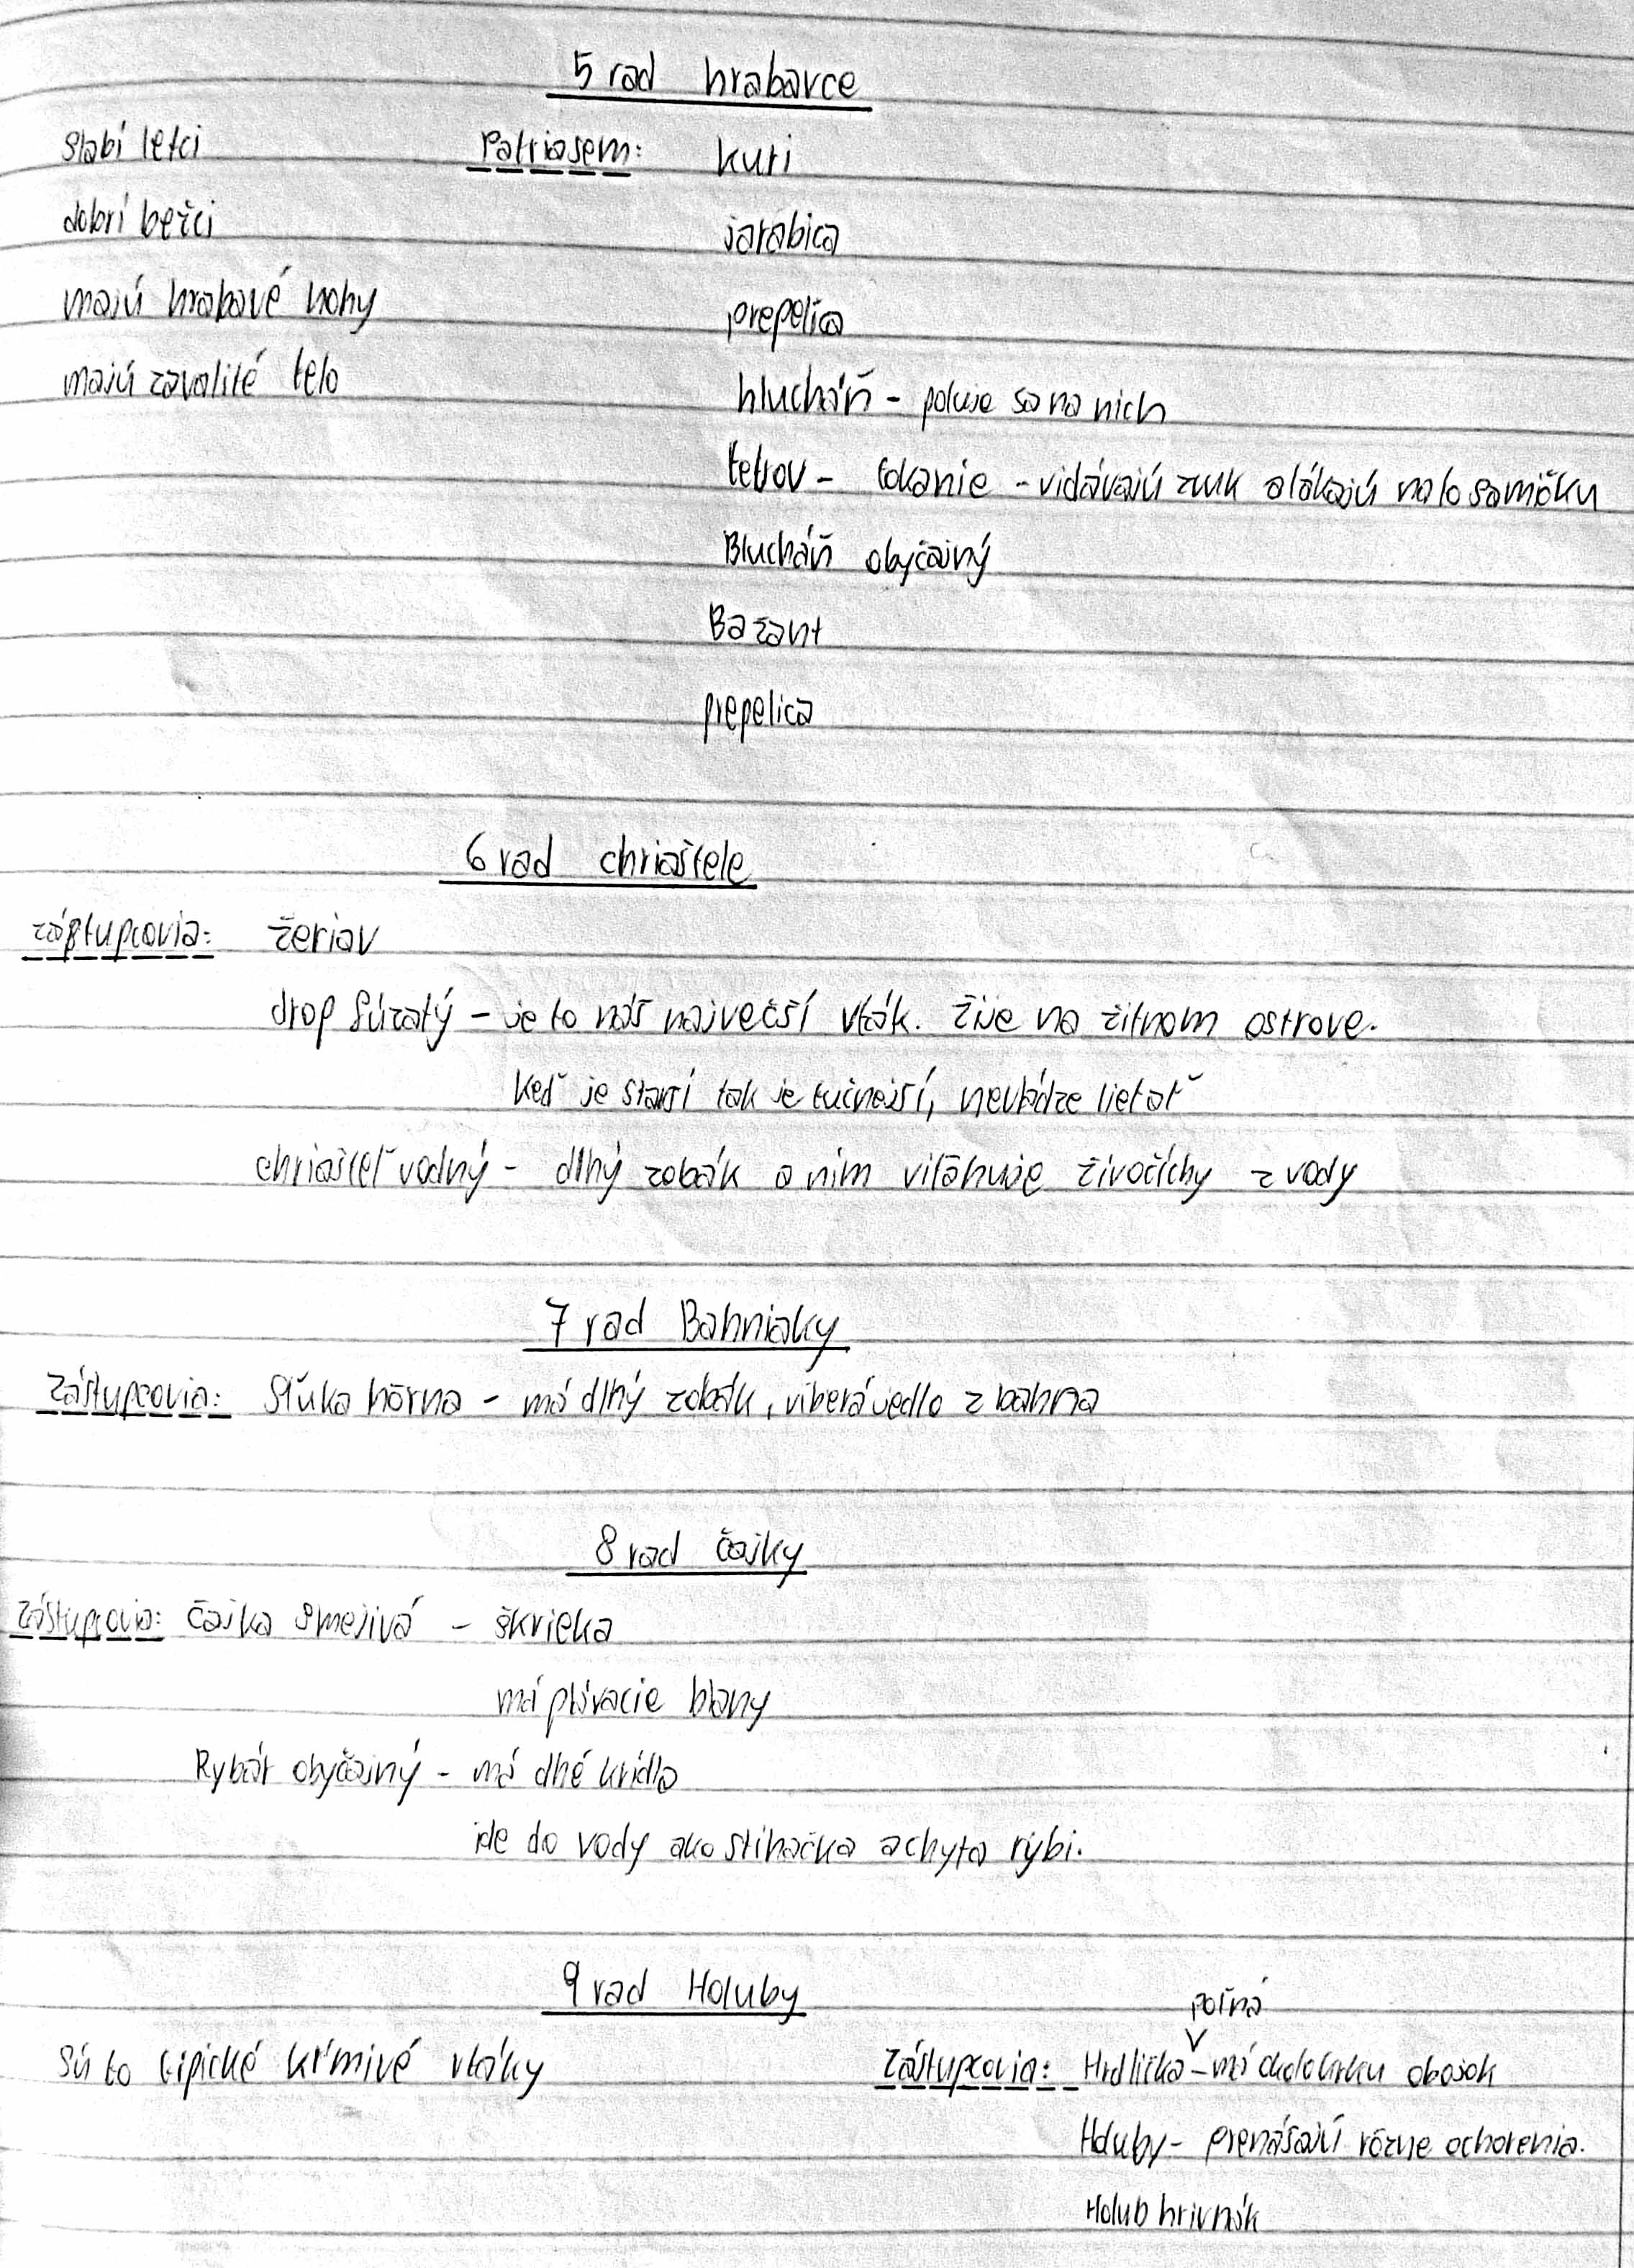 5 rad hrabavce
Slabí letci Patria sem: kuri
dobrí bežci jarabica
majú hrabavé nohy prepelica
majú zavalité telo hlucháň - poluje sa na nich
tetrov - tokanie - vidávajú zvuk a lákajú na to samičku
Blucháň obyčajný
Bažant
prepelica
6 rad chriaštele
zástupcovia: žeriav
drop fúzatý - je to náš največší vták. Žije na žitnom ostrove.
keď je starší tak je tučnejší, nevládze lietať
chriašteľ vodný - dlhý zobák a ním viťahuje živočíchy z vody
7 rad Bahniaky
Zástupcovia: Sľuka hôrna - má dlhý zobák, viberá jedlo z bahna
8 rad čajky
Zástupcovia: čajka smejivá - škrieka
má plávacie blany
Rybár obyčajný - má dlhé krídla
ide do vody ako stíhačka a chyta rybi.
9 rad Holuby
poľná
Sú to tipické kŕmivé vtáky Zástupcovia: Hrdlička - má okolo krku obojok
Holuby - prenášajú rôzne ochorenia.
Holub hrivnák